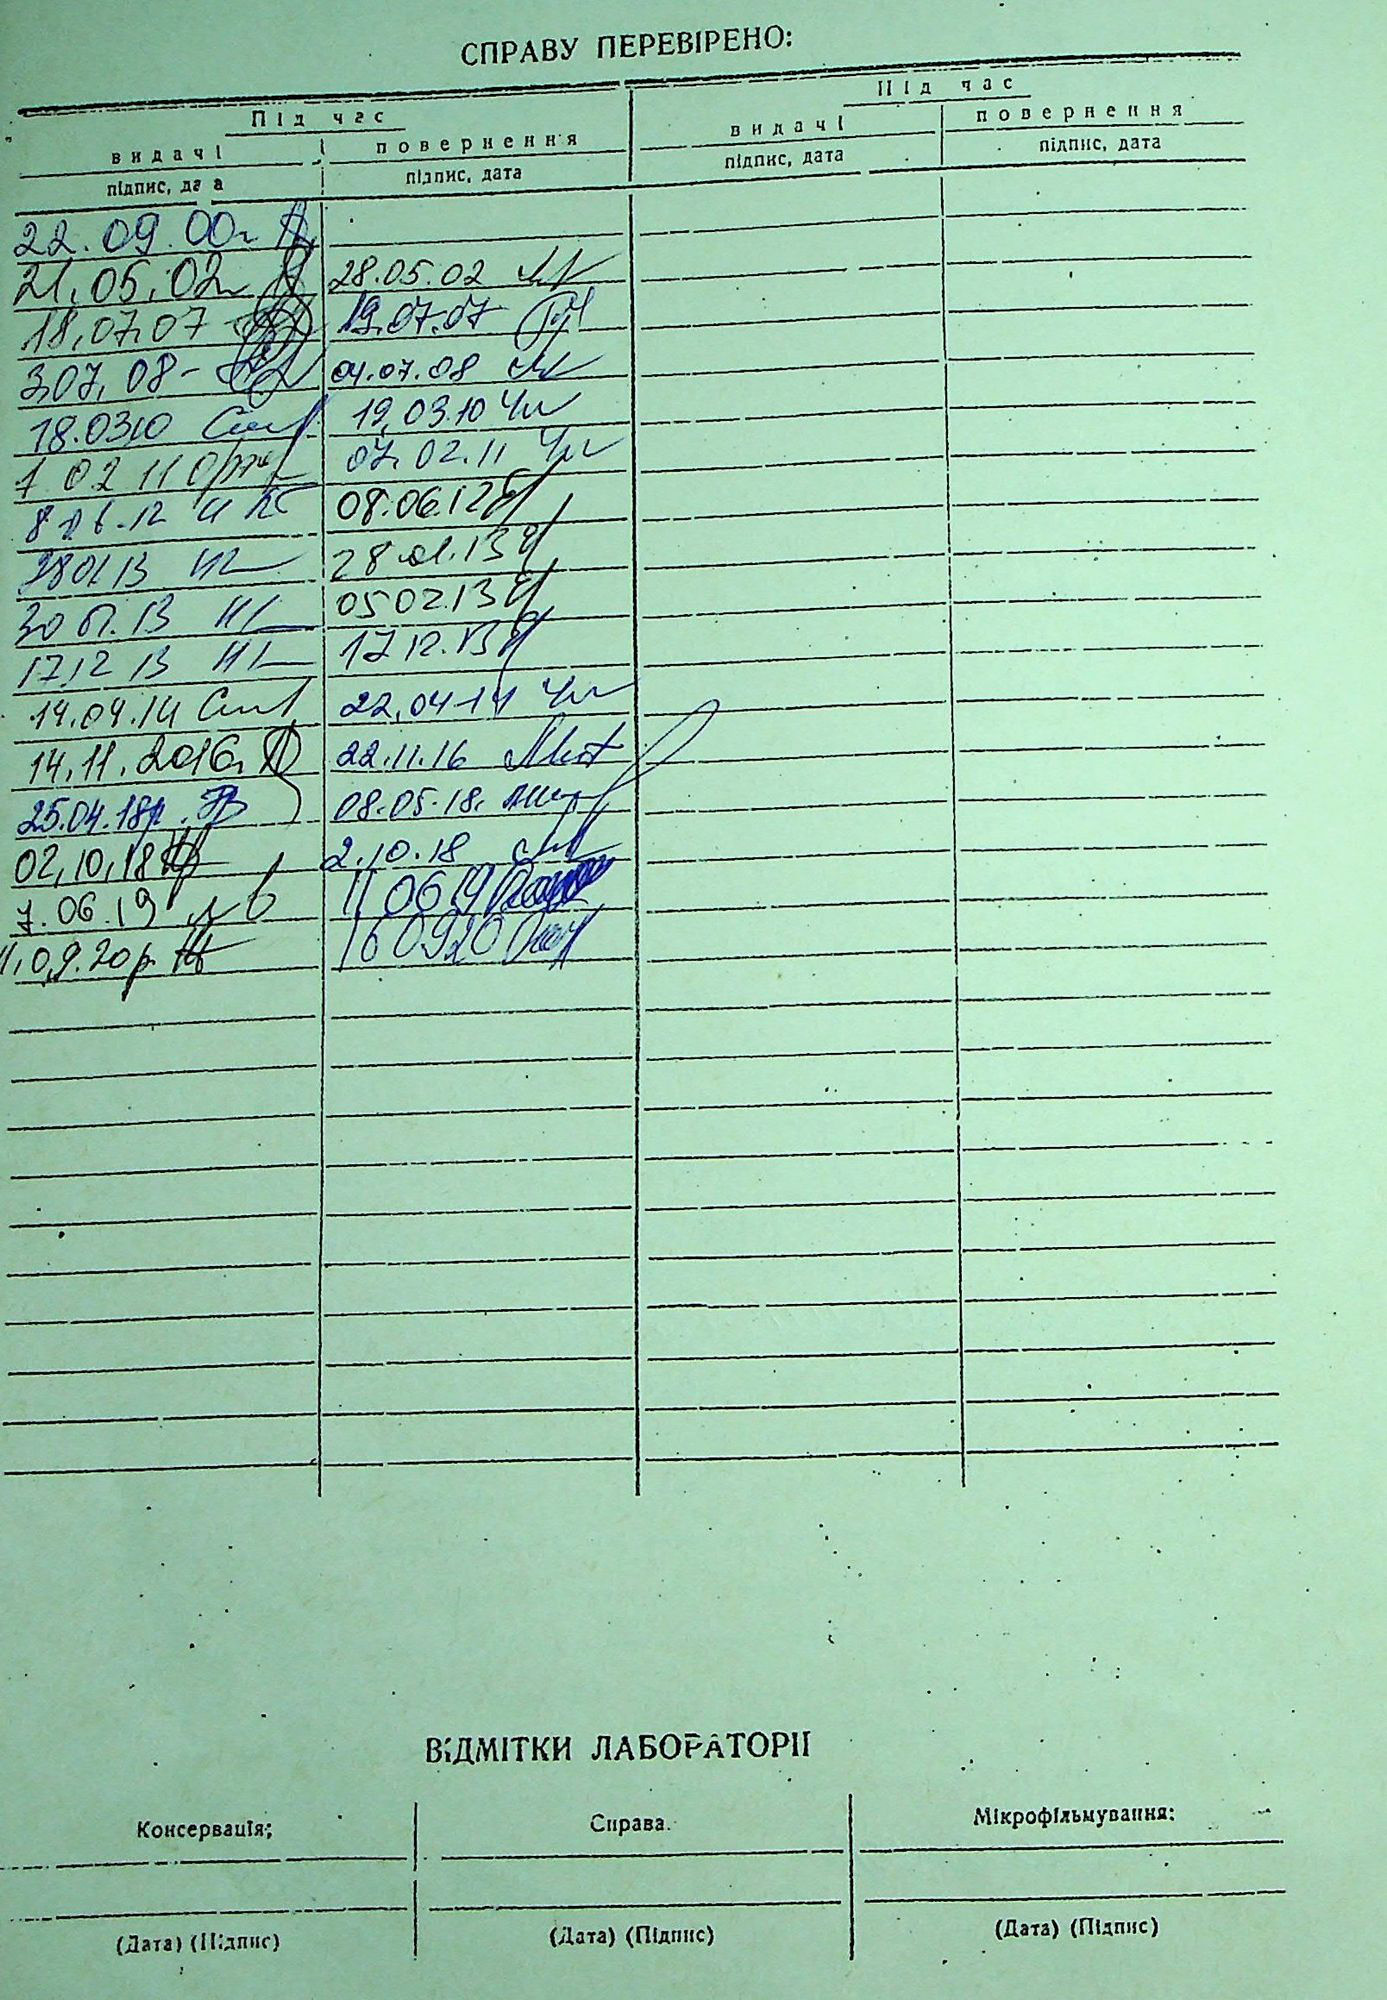 СПРАВУ ПЕРЕВІРЕНО:
Під час Під час
видачі повернення видачі повернення
підпис, дата підпис, дата підпис, дата підпис, дата
22.09.00г
21.05.02г 28.05.02
18.07.07 19.07.07
3.07.08 - 04.07.08
18.03.10 19.03.10
1 02 11 07.02.11
8.06.12 08.06.12
28 01 13 28.01.13
30 01.13 05 02.13
17.12 13 17 12.13
14.04.14 22.04.14
14.11.2016г. 22.11.16
25.04.18р. 08.05.18.
02.10.18 2.10.18
7.06.19 11 06 19
11.09.20р. 16 09 20
ВІДМІТКИ ЛАБОРАТОРІЇ
Консервація: Справа. Мікрофільмування:
(Дата) (Підпис) (Дата) (Підпис) (Дата) (Підпис)